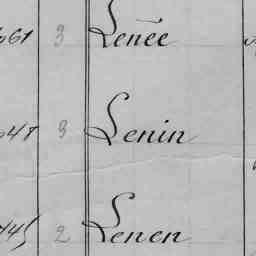 661 3 Lenée
647 3 Lenin
745 2 Lenen